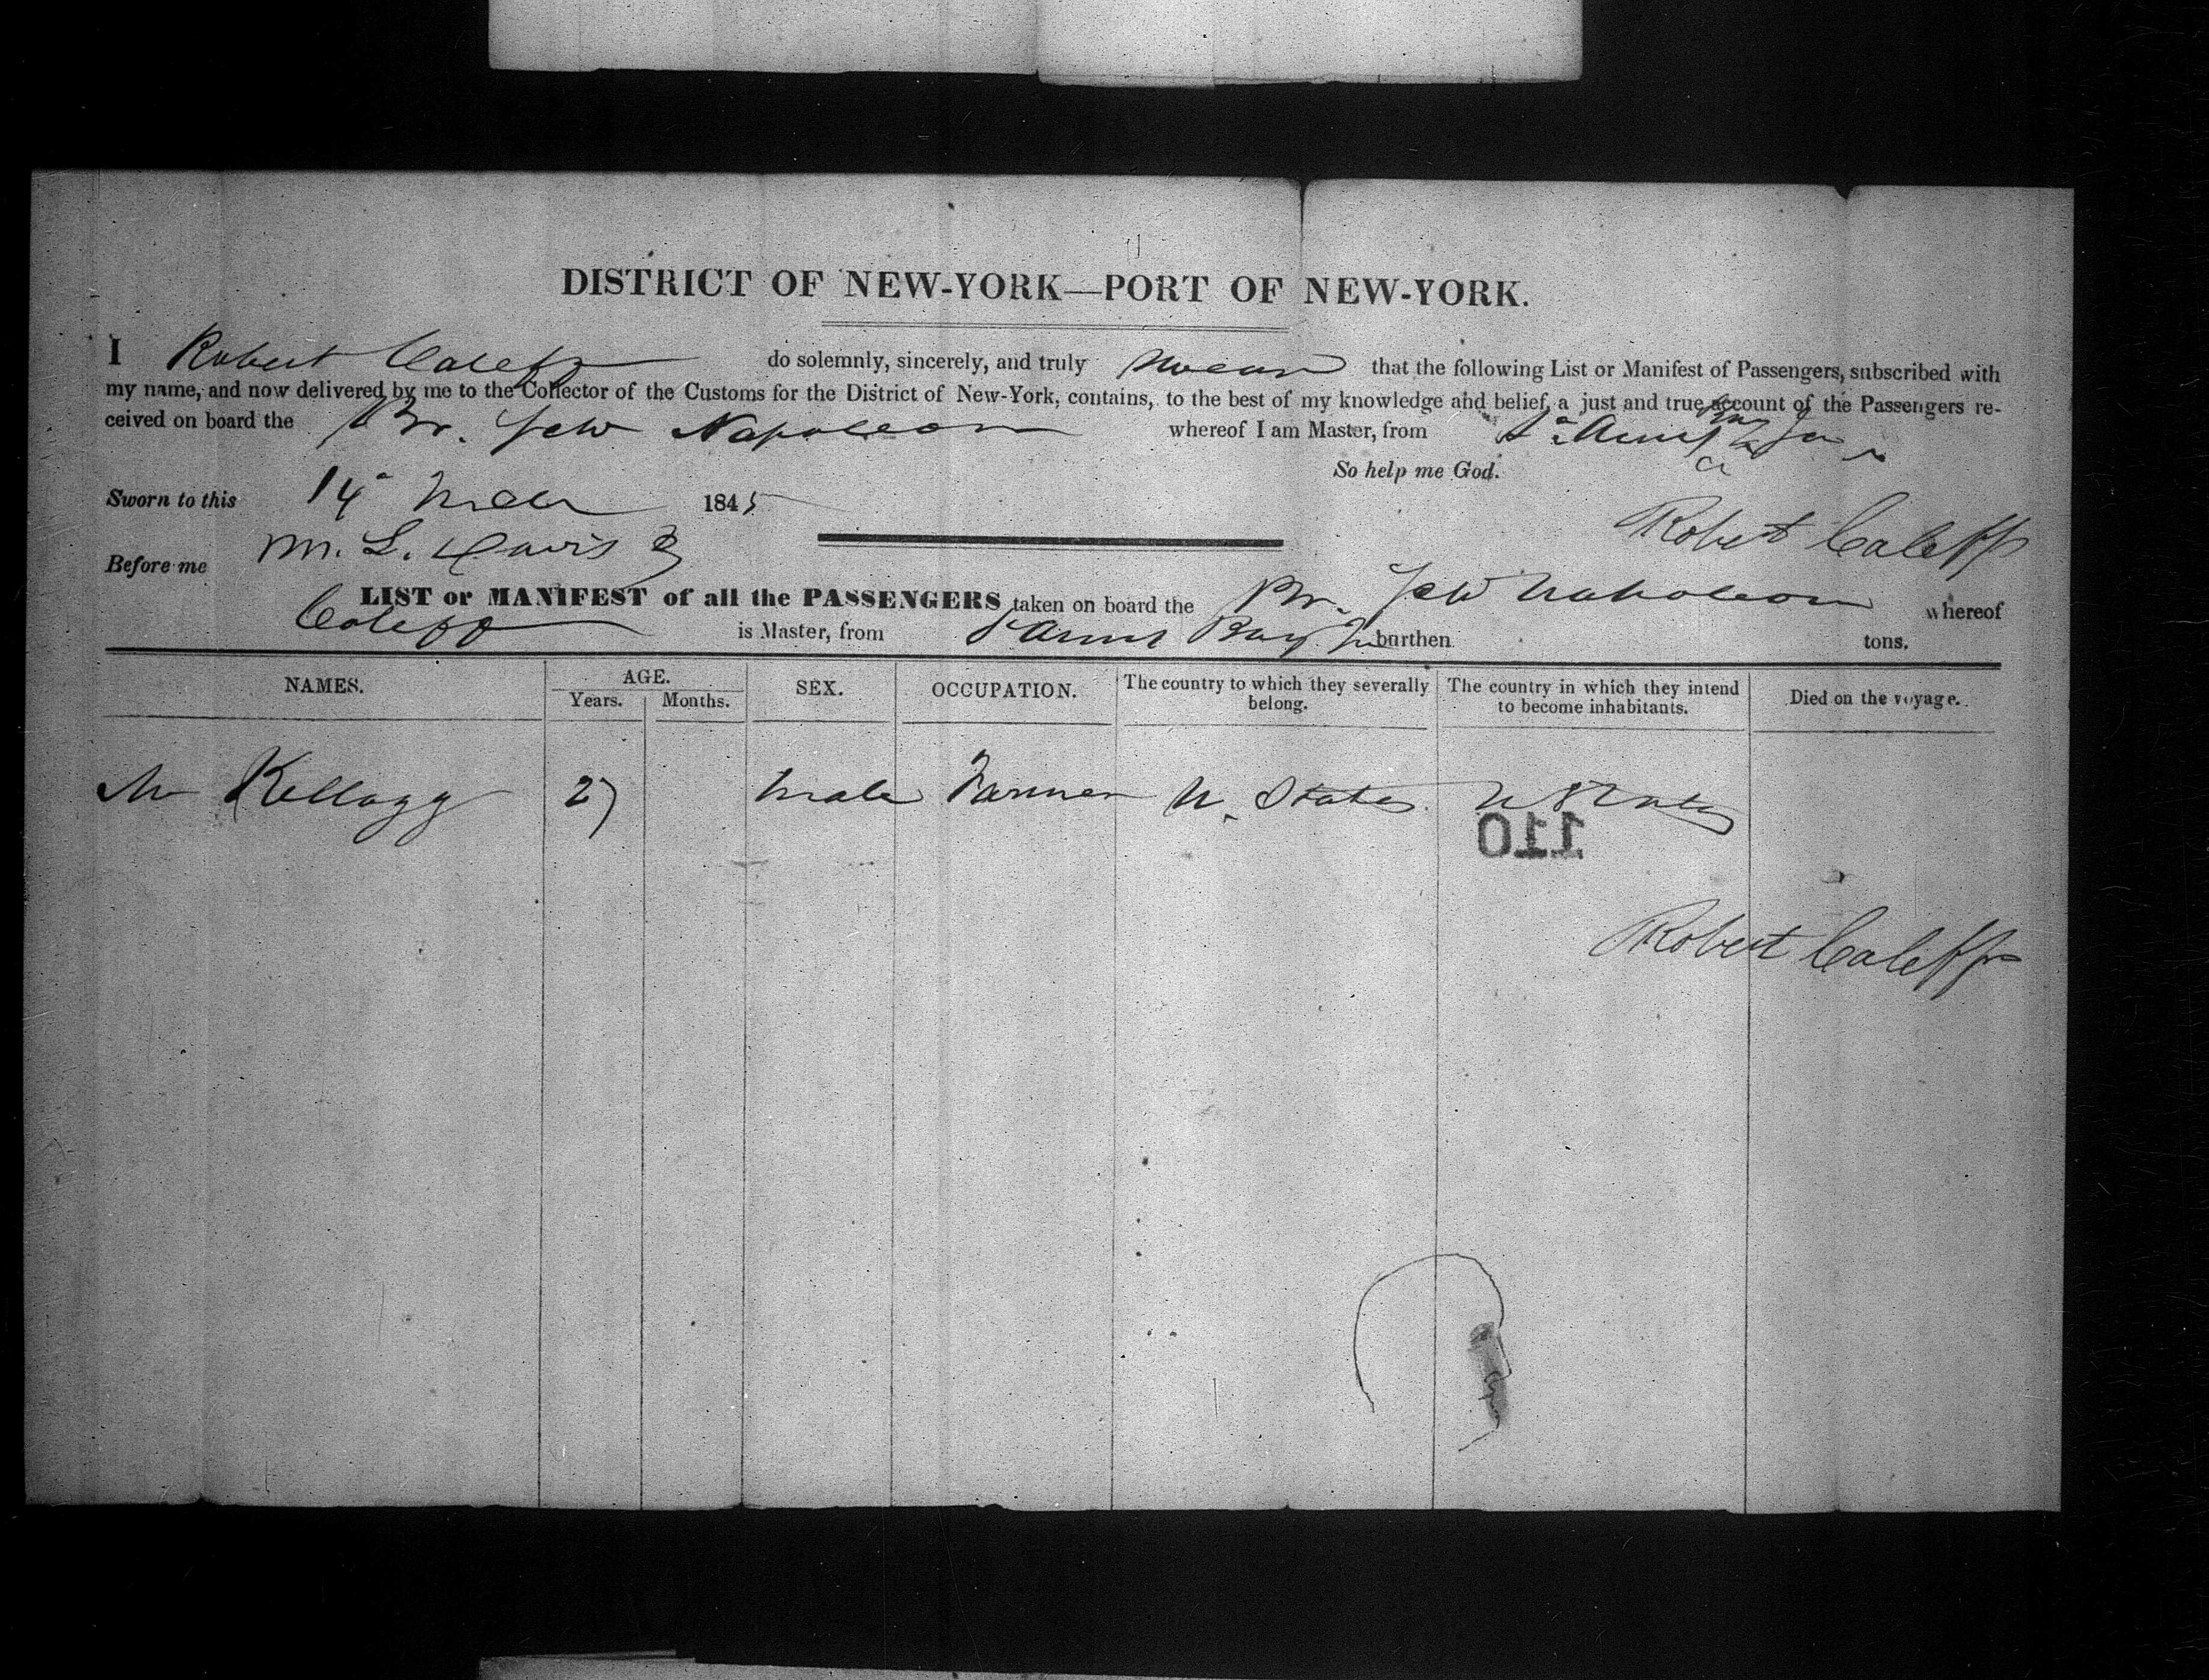 DISTRICT OF NEW-YORK—PORT OF NEW-YORK.
I Robert Caleff do solemnly, sincerely, and truly swear that the following List or Manifest of Passengers, subscribed with
my name, and now delivered by me to the Collector of the Customs for the District of New-York, contains, to the best of my knowledge and belief, a just and true account of the Passengers re-
ceived on board the Br. Schr Napoleon whereof I am Master, from St Anns Bay Ja
So help me God.
Sworn to this 14 1845
Robert Caleff
Before me M. L. Davis
LIST or MANIFEST of all the PASSENGERS taken on board the Br. Schr Napoleon whereof
Caleff is Master, from St Anns Bay Ja burthen tons.
NAMES. AGE. Years. Months. SEX. OCCUPATION. The country to which they severally belong. The country in which they intend to become inhabitants. Died on the voyage.
Mr Kellogg 27 Male Farmer U. States U States
110
Robert Caleff